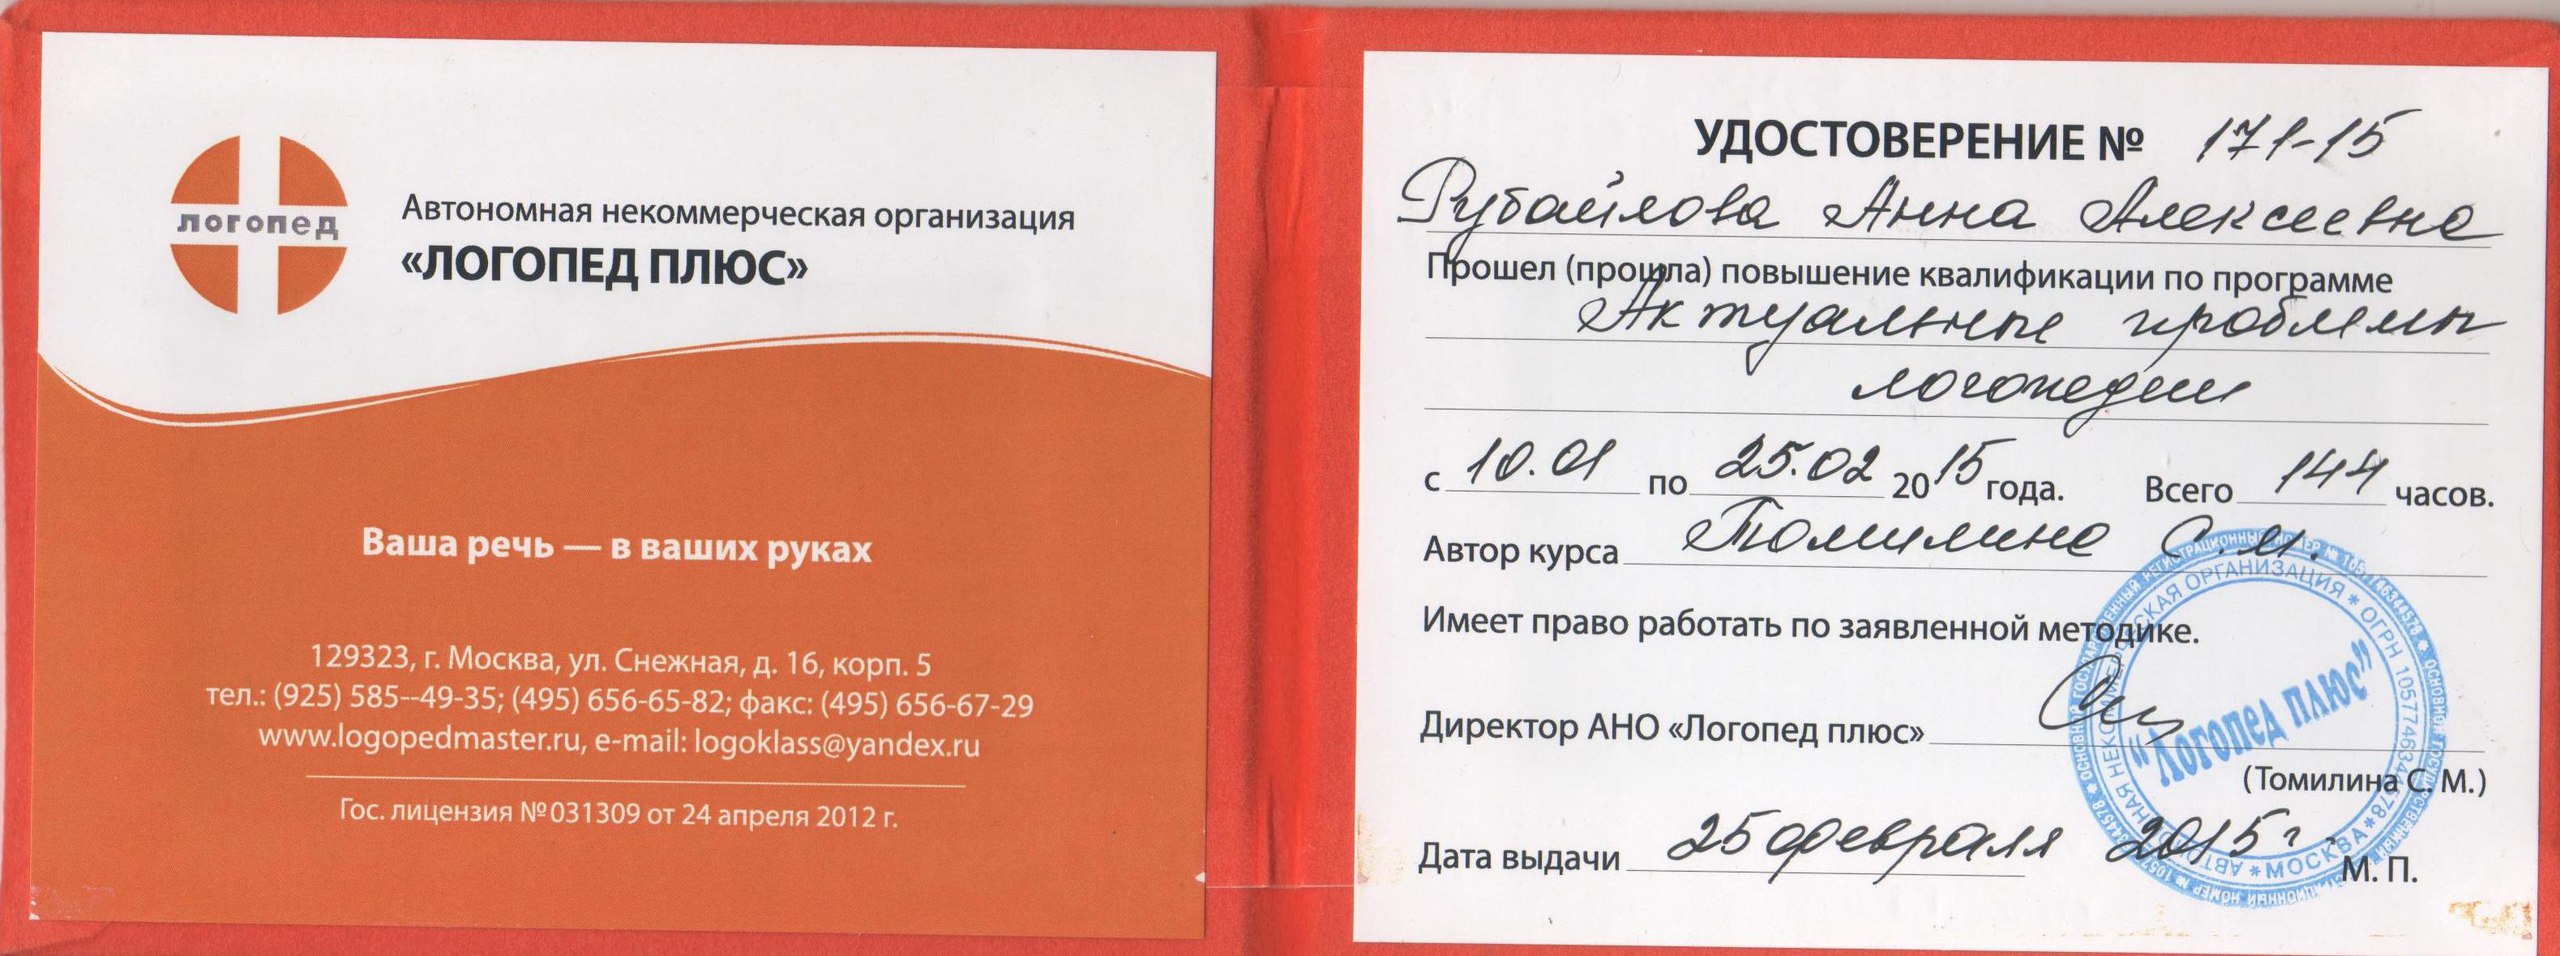 логопед
Автономная некоммерческая организация
«ЛОГОПЕД ПЛЮС»
Ваша речь — в ваших руках
129323, г. Москва, ул. Снежная, д. 16, корп. 5
тел.: (925) 585--49-35; (495) 656-65-82; факс: (495) 656-67-29
www.logopedmaster.ru, e-mail: logoklass@yandex.ru
Гос. лицензия №031309 от 24 апреля 2012 г.
УДОСТОВЕРЕНИЕ № 171-15
Рубайлова Анна Алексеевна
Прошел (прошла) повышение квалификации по программе
Актуальные проблемы
логопедии
с 10.01 по 25.02 2015 года. Всего 144 часов.
Автор курса Томилина С. М.
Имеет право работать по заявленной методике.
Директор АНО «Логопед плюс»
(Томилина С. М.)
Дата выдачи 25 февраля 2015 г.
М. П.
"Логопед плюс"
АВТОНОМНАЯ НЕКОММЕРЧЕСКАЯ ОРГАНИЗАЦИЯ * ОГРН 1057746344578 * МОСКВА *